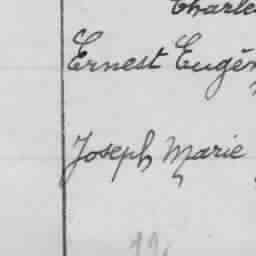 Charle
Ernest Eugèn
Joseph Marie